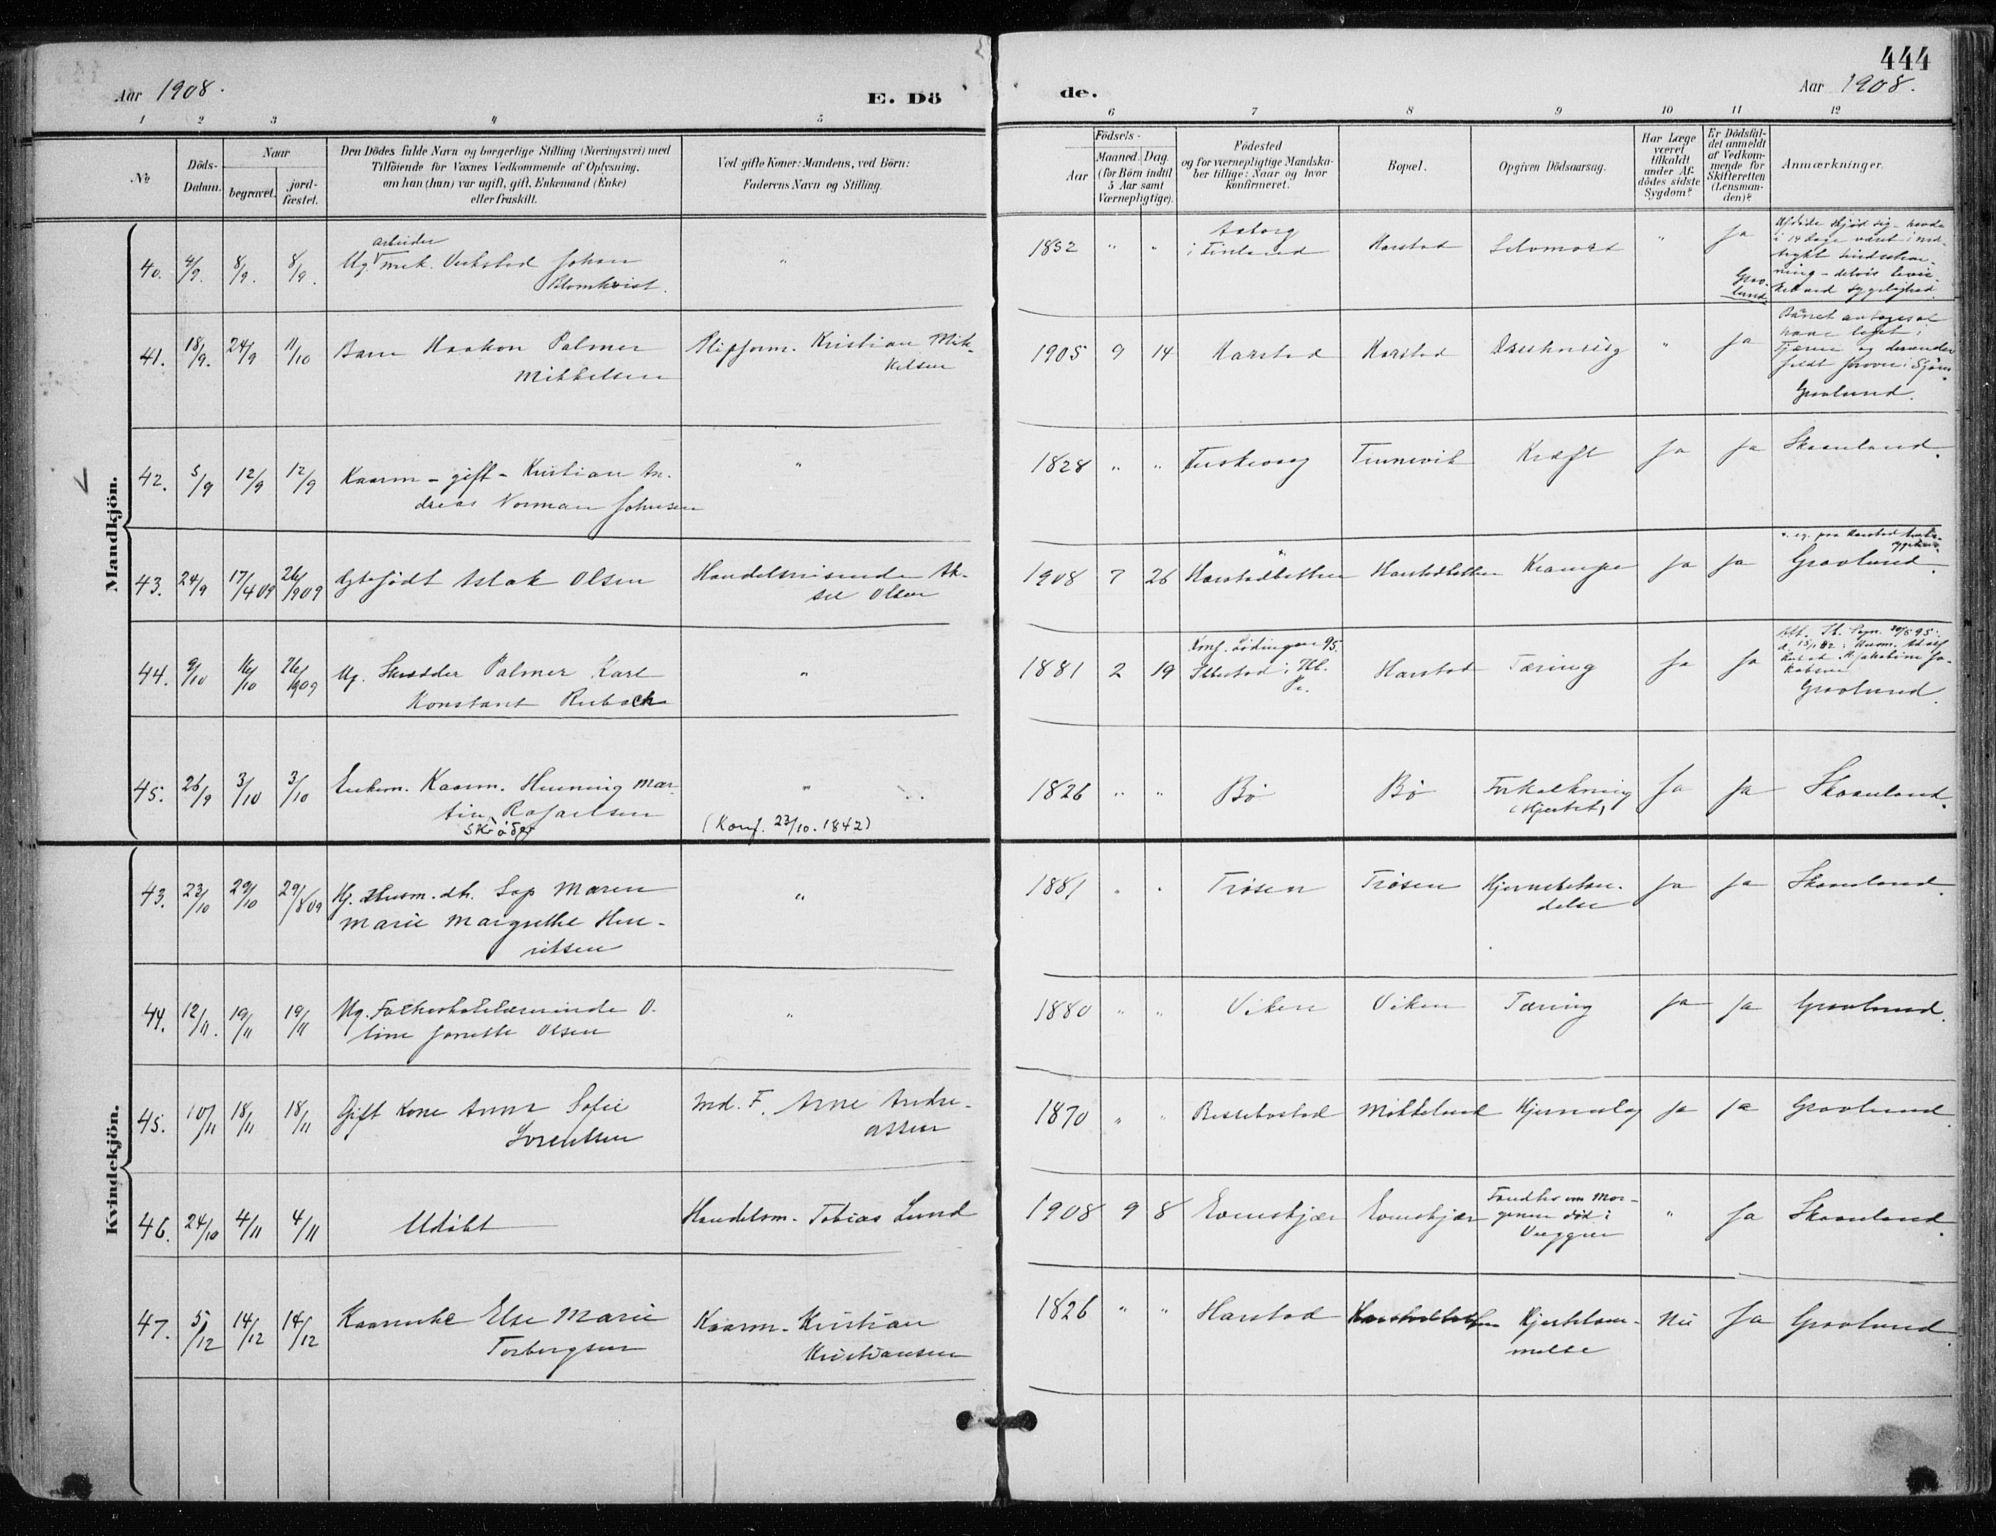 444
Aar 1908.
E. Dö
de.
Aar 1908.
1 2 3 4 5 6 7 8 9 10 11 12
№
Döds-
Datum.
Naar
begravet.
jord-
fæstet.
Den Dödes fulde Navn og borgerlige Stilling (Næringsvei) med
Tilföiende for Voxnes Vedkommende af Oplysning,
om han (hun) var ugift, gift, Enkemand (Enke)
eller fraskilt.
Ved gifte Koner: Mandens, ved Börn:
Faderens Navn og Stilling.
Födsels-
Aar
Maaned. Dag.
(for Börn indtil
5 Aar samt
Værnepligtige).
Födested
og for værnepligtige Mandska-
ber tillige: Naar og hvor
Konfirmeret.
Bopæl.
Opgiven Dödsaarsag.
Har Læge
været
tilkaldt
under Af-
dödes sidste
Sygdom?
Er Dödsfal-
det anmeldt
af Vedkom-
mende for
Skifteretten
(Lensman-
den)?
Anmærkninger.
Mandkjön.
40. 4/9. 8/9. 8/9.
arbeider
Ug. mek. Verksted Johan
Blomkvist.
"
1852 " "
i Finland
Harstad
Selvmord
"
ja
Grav-
lund.
Afdöde skjöd sig - havde
i 14 dage været i ned-
trykt sindsstem-
ning - delvis
sygelighed.
41. 18/9. 24/9 11/10
Barn Haakon Palmer
Mikkelsen
Slipform. Kristian Mik-
kelsen
1905 9 14
Harstad
Harstad
"
ja
Barnet antages at
have leget i
Fjæren og derunder
faldt i Sjöen.
Gravlund.
42. 5/9 12/9 12/9
Kaarm - gift - Kristian An-
dreas Norman Johnsen
"
1828 " "
Tuskevaag
Tennevik
Kræft
ja
ja
Skaanland.
43. 24/9 17/4 09 26/9 09
Ægtefödt Aslak Olsen
Handelsreisende Ak-
sel Olsen
"
1908 7 26
Harstadbotten
Harstadbotten
Krampe
ja
ja
Gravlund.
44. 9/10 16/10 26/9 09
Ug. Skrædder Palmer Karl
Konstant Rubach
"
1881 2 19
Konf. Lödingen 95.
Ibbestad i Hl.
Pr.
Harstad
Tæring
ja
ja
Gravlund.
45. 26/9 3/10 3/10
Enkem. Kaarm. Henning Mar-
tin Rafaelsen
Skröder
"
(Konf. 23/10. 1842)
1826 " "
Bö
Bö
Forkalkning
(Hjertet)
ja
ja
Skaanland.
Kvindekjön.
43. 23/10 29/10 29/8 09
Ug. Husm. dt. Lap Maren
Marie Margrethe Hen-
riksen
"
1881 " "
Trösen
Trösen
Hjernebetæn-
delse
ja
ja
Skaanland.
44. 12/11. 19/11 19/11
Ug. Folkeskolelærerinde O-
line Janette Olsen
"
1880 " "
Viken
Viken
Tæring
ja
ja
Gravlund.
45. 10/11 18/11 18/11
Gift Kone Anna Sofie
Lorentsen
Md. F. Arne Andre-
assen
1870 " "
Bessebostad
Mökkeland
Hjerneslag
ja
ja
Gravlund.
46. 24/10 4/11 4/11
Udöbt
Handelsm. Tobias Lund
1908 9 8
Evenskjær
Evenskjær
Fandtes om Mor-
genen död i
Vuggen
"
ja
Skaanland.
47. 5/12 14/12 14/12
Kaarenke Else Marie
Torbergsen
Kaarm. Kristian
Kristiansen
1826 " "
Harstad
Harstadbotten
Hjertelam-
melse
Nei
Ja
Gravlund.